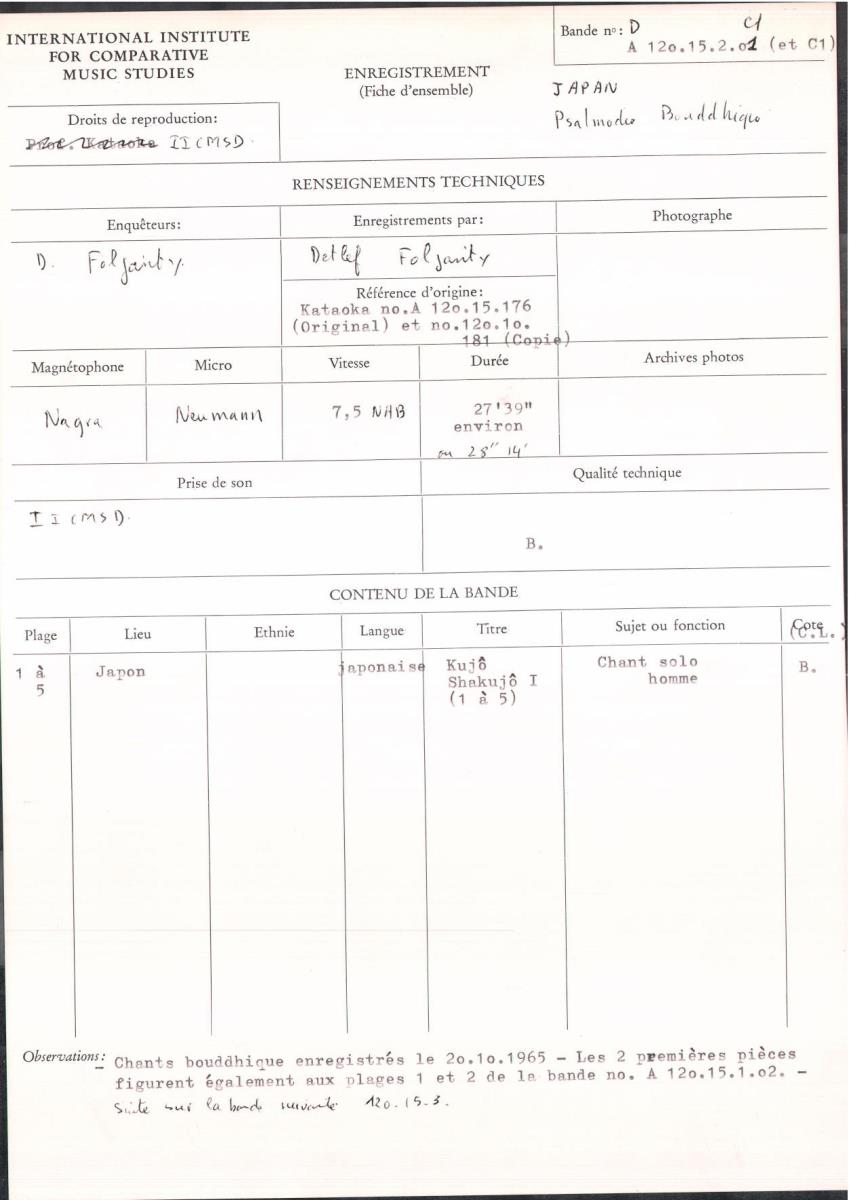 INTERNATIONAL INSTITUTE
FOR COMPARATIVE
MUSIC STUDIES
ENREGISTREMENT
(Fiche d'ensemble)
Bande nº: D C1
A 12o.15.2.o1 (et C1)
JAPAN
Psalmodie Bouddhique
Droits de reproduction:
Kataoka IICMSD.
RENSEIGNEMENTS TECHNIQUES
Enquêteurs:
Enregistrements par:
Photographe
D. Foljanty.
Detlef Foljanty
Référence d'origine:
Kataoka no.A 12o.15.176
(Original) et no.12o.1o.
181 (Copie)
Magnétophone
Micro
Vitesse
Durée
Archives photos
Nagra
Neumann
7,5 NAB
27'39"
environ
ou 28" 14'
Prise de son
Qualité technique
IICMSD.
B.
CONTENU DE LA BANDE
Plage
Lieu
Ethnie
Langue
Titre
Sujet ou fonction
Cote
(C.L.)
1 à
5
Japon
japonaise
Kujô
Shakujô I
(1 à 5)
Chant solo
homme
B.
Observations: Chants bouddhique enregistrés le 2o.1o.1965 - Les 2 premières pièces
figurent également aux plages 1 et 2 de la bande no. A 12o.15.1.o2. -
Suite sur la bande suivante 120.15.3.